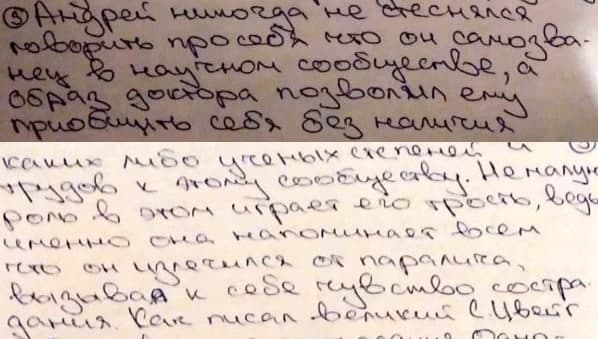 ③ Андрей никогда не стеснялся
говорить про себя что он самозва-
нец в научном сообществе, а
образ доктора позволял ему
приобщить себя без наличия
каких либо ученых степеней и
трудов к этому сообществу. Не малую
роль в этом играет его трость, ведь
именно она напоминает всем
что он излечился от паралича,
вызывая к себе чувство состра-
дания. Как писал великий С. Цвейг